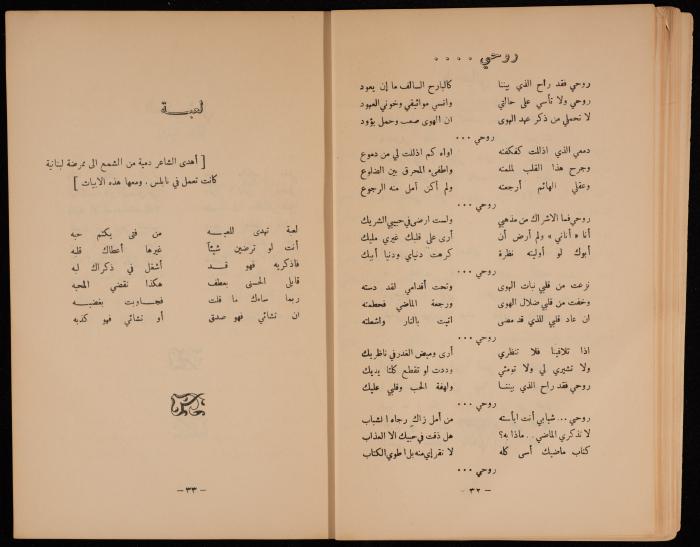 روحي ....
روحي فقد راح الذي بيننا كالبارح السالف ما إن يعود
روحي ولا تأسي على حالتي وانسي مواثيقي وخوني العهود
لا تحملي من ذكر عهد الهوى ان الهوى صعب وحمل يؤود
روحي ...
دمعي الذي اذللت كفكفته اواه كم اذللت لي من دموع
وجرح هذا القلب لملمته واطفىء المحرق بين الضلوع
وعقلي الهائم أرجعته ولم أكن آمل منه الرجوع
روحي ...
روحي فما الاشراك من مذهبي ولست ارضى في حبيبي الشريك
أنا « أناني » ولم أرض أن أرى على قلبك غيري مليك
أبوك لو أوليته نظرة كرهت دنياي ودنيا أبيك
روحي ...
نزعت من قلبي نبات الهوى وتحت أقدامي لقد دسته
وخفت من قلبي ضلال الهوى ورجعة الماضي فحطمته
ان عاد قلبي للذي قد مضى اتيت بالنار واشعلته
روحي ...
اذا تلاقينا فلا تنظري أرى وميض الغدر في ناظريك
ولا تشيري لي ولا تومئي وددت لو تقطع كلتا يديك
روحي فقد راح الذي بيننا والهفة الحب وقلبي عليك
روحي ...
روحي ... شبابي أنت ابأسته من أمل زاكٍ رجاه الشباب
لا تذكري الماضي .. ماذا به؟ هل ذقت في حبيك الا العذاب
كتاب ماضيك أسى كله لا تقرإي منه بل اطوي الكتاب
روحي ...
- ٣٢ -
لعبة
[ أهدى الشاعر دمية من الشمع الى ممرضة لبنانية
كانت تعمل في نابلس . ومعها هذه الابيات ]
لعبة تهدى للعبه من فتى يكتم حبه
أنت لو ترضين شيئاً غيرها أعطاك قلبه
فاذكريه فهو قد أشغل في ذكراك لبه
قابلي الحسنى بعطف هكذا تقضي المحبه
ربما ساءك ما قلت فجاوبت بغضبه
ان تشائي فهو صدق أو تشائي فهو كذبه
- ٣٣ -